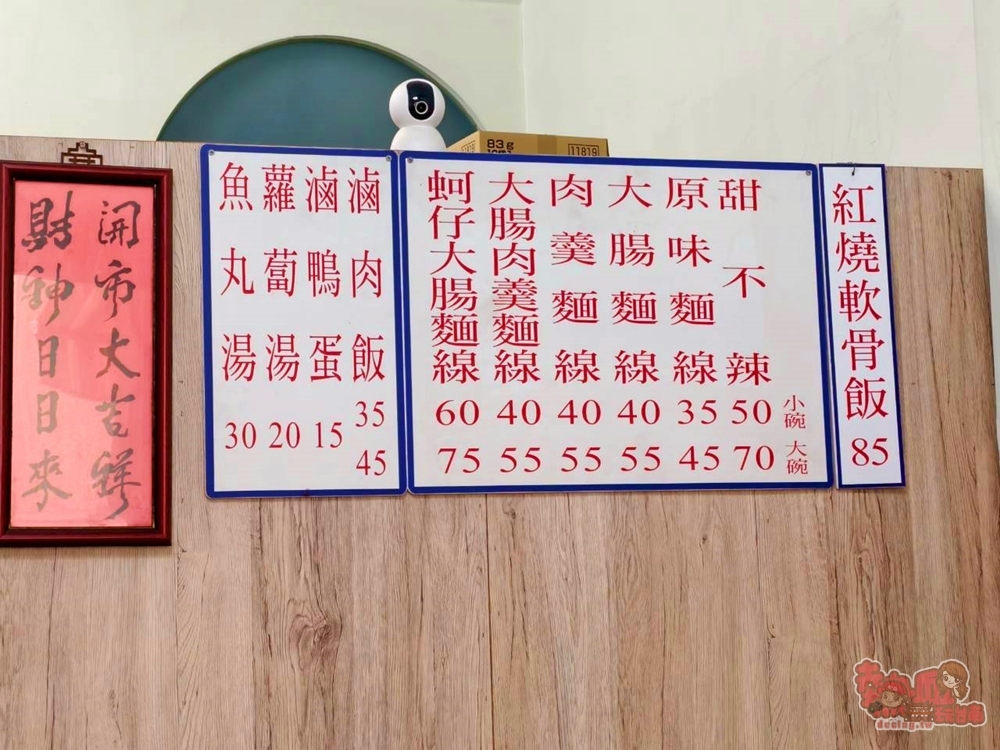 紅燒軟骨飯 85
小碗 大碗
甜不辣 50 70
原味麵線 35 45
大腸麵線 40 55
肉羹麵線 40 55
大腸肉羹麵線 40 55
蚵仔大腸麵線 60 75
滷肉飯 35 45
滷鴨蛋 15
蘿蔔湯 20
魚丸湯 30
開市大吉祥
財神日日來
83g
11819
decing.tw